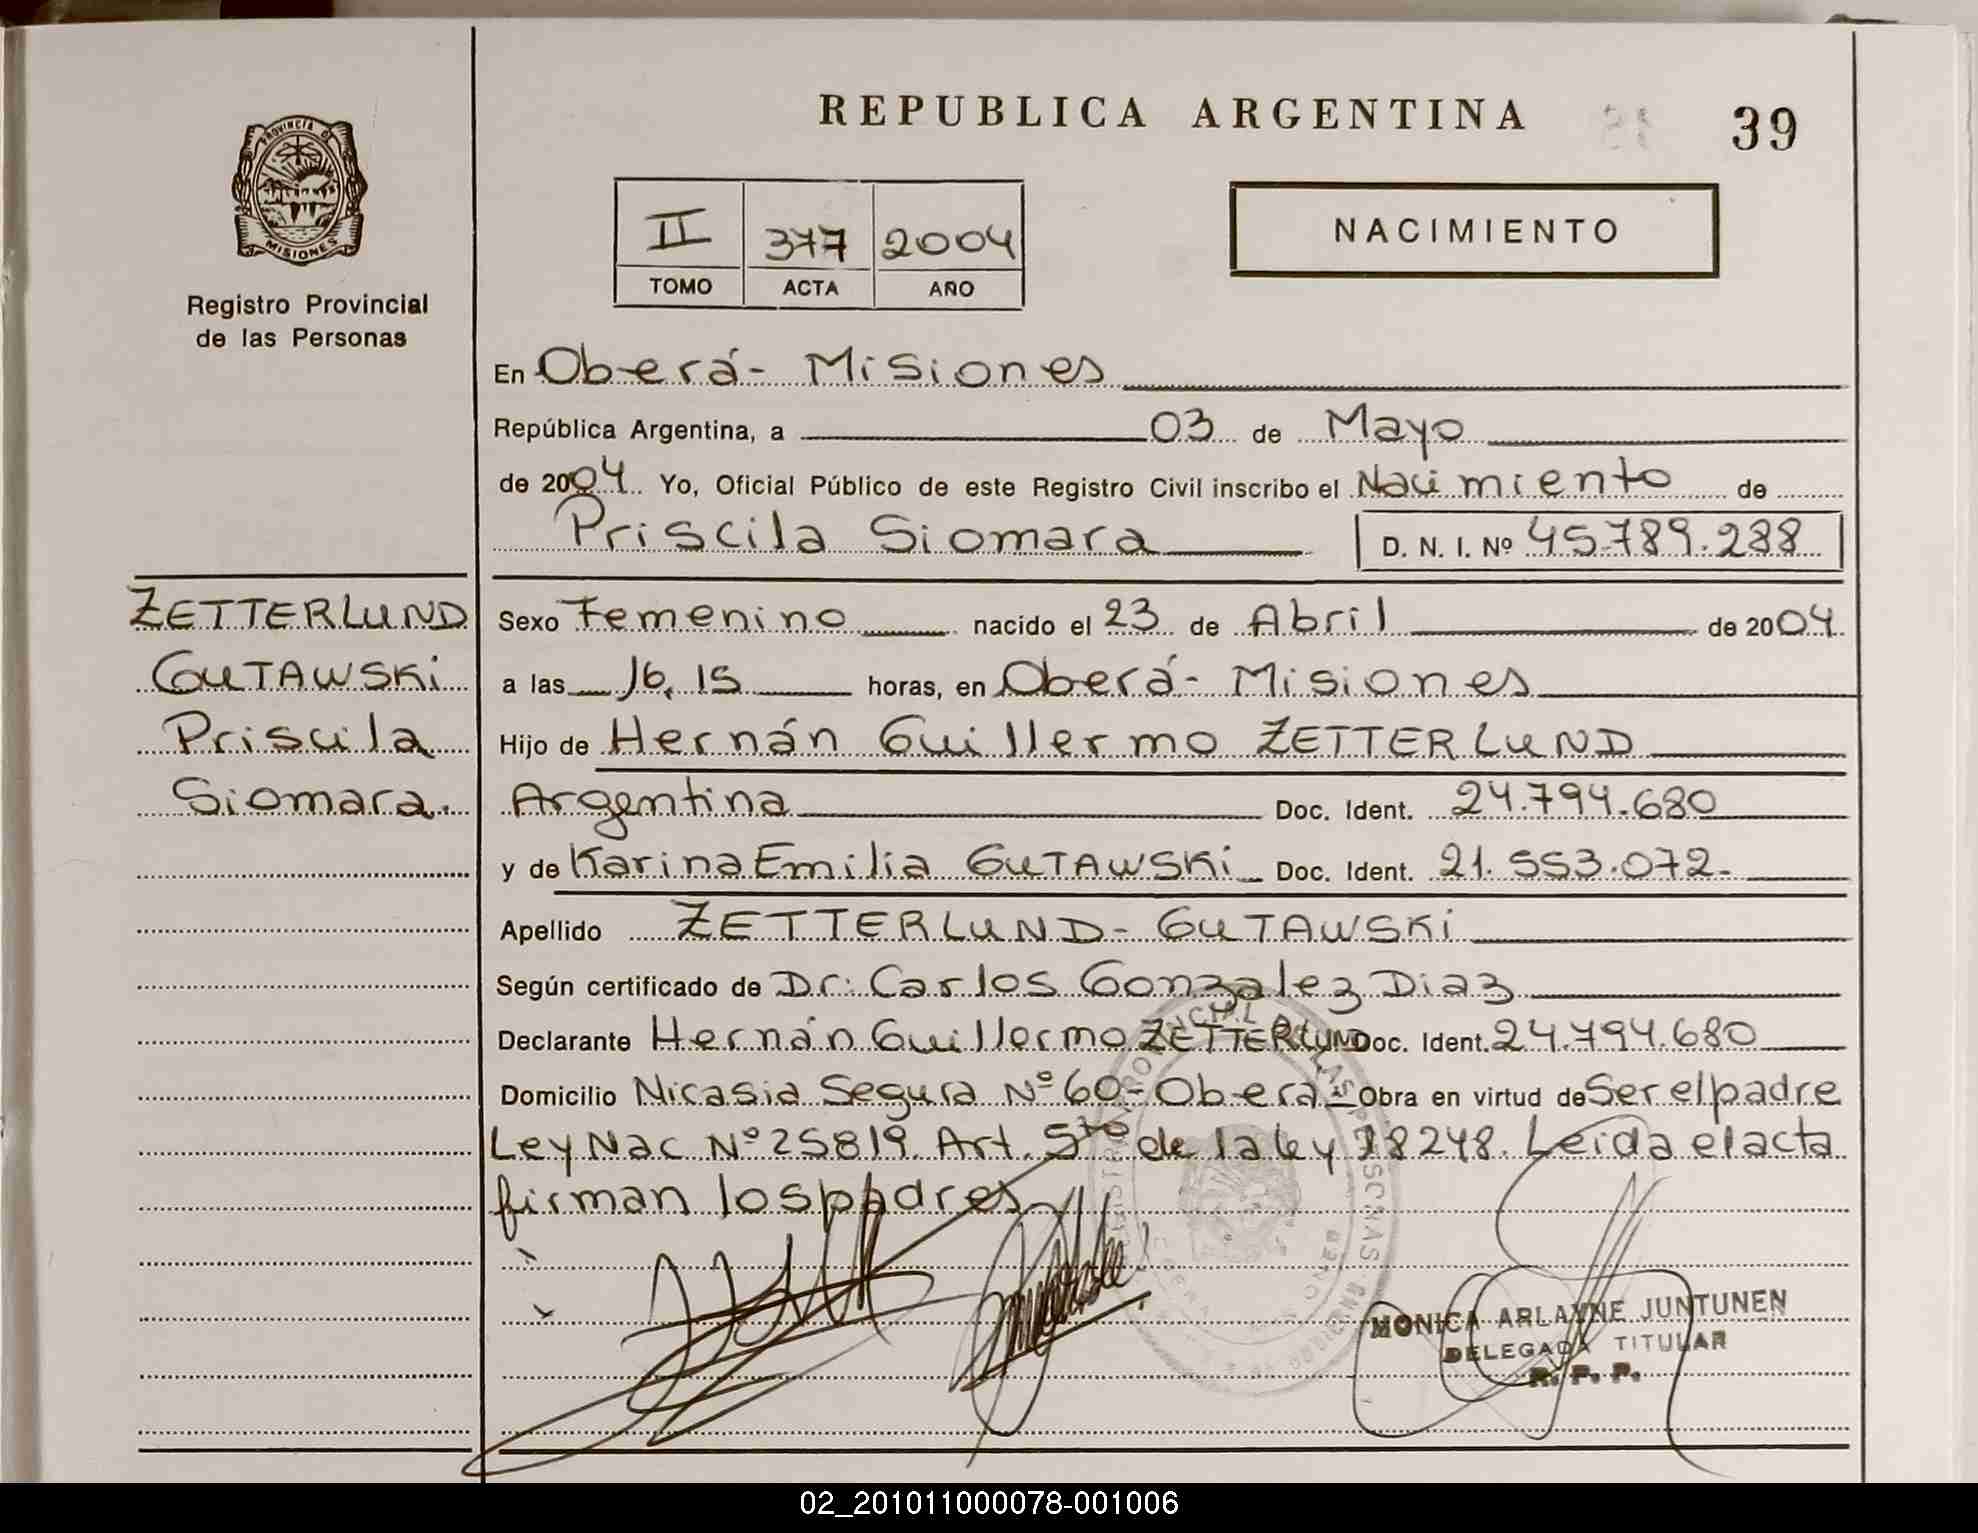 REPUBLICA ARGENTINA
39
PROVINCIA DE
MISIONES
Registro Provincial
de las Personas
II 377 2004
TOMO ACTA AÑO
NACIMIENTO
En Oberá - Misiones
República Argentina, a 03 de Mayo
de 2004 Yo, Oficial Público de este Registro Civil inscribo el Nacimiento de
Priscila Siomara D. N. I. Nº 45.789.288
ZETTERLUND
GUTAWSKi
Priscila
Siomara.
Sexo Femenino nacido el 23 de Abril de 2004.
a las 16,15 horas, en Oberá - Misiones
Hijo de Hernán Guillermo ZETTERLUND
Argentina Doc. Ident. 24.794.680
y de Karina Emilia GUTAWSKi Doc. Ident. 21.553.072-
Apellido ZETTERLUND - GUTAWSKi
Según certificado de Dr. Carlos Gonzalez Diaz
Declarante Hernán Guillermo ZETTERLUND Doc. Ident. 24.794.680
Domicilio Nicasia Segura Nº 60 - Obera - Obra en virtud de Ser el padre
Ley Nac Nº 25819. Art. 5to de la ley 18248. Leida el acta
firman los padres
MONICA ARLAYNE JUNTUNEN
DELEGADA TITULAR
R. P. P.
02_201011000078-001006